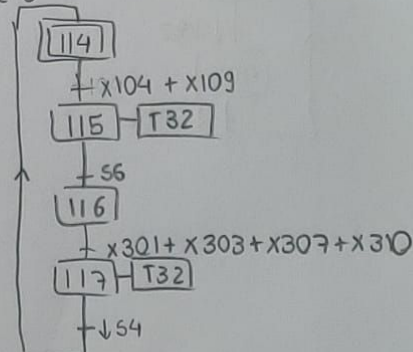 114
X104 + X109
115 T32
S6
116
X301 + X303 + X307 + X310
117 T32
↓S4